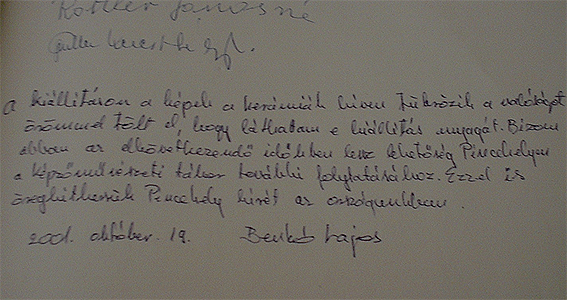 Kottler Jánosné
A kiállításon a képek a kerámiák híven tükrözik a valóságot
örömmel tölt el, hogy láthatam e kiállítás anyagát. Bizom
abban az elkövetkezendő időkben lesz lehetőség Pincehelyen
a képzőművészeti tábor további folytatásához. Ezzel is
öregbithessük Pincehely hírét az országunkban.
2001. október. 19. Benkó Lajos